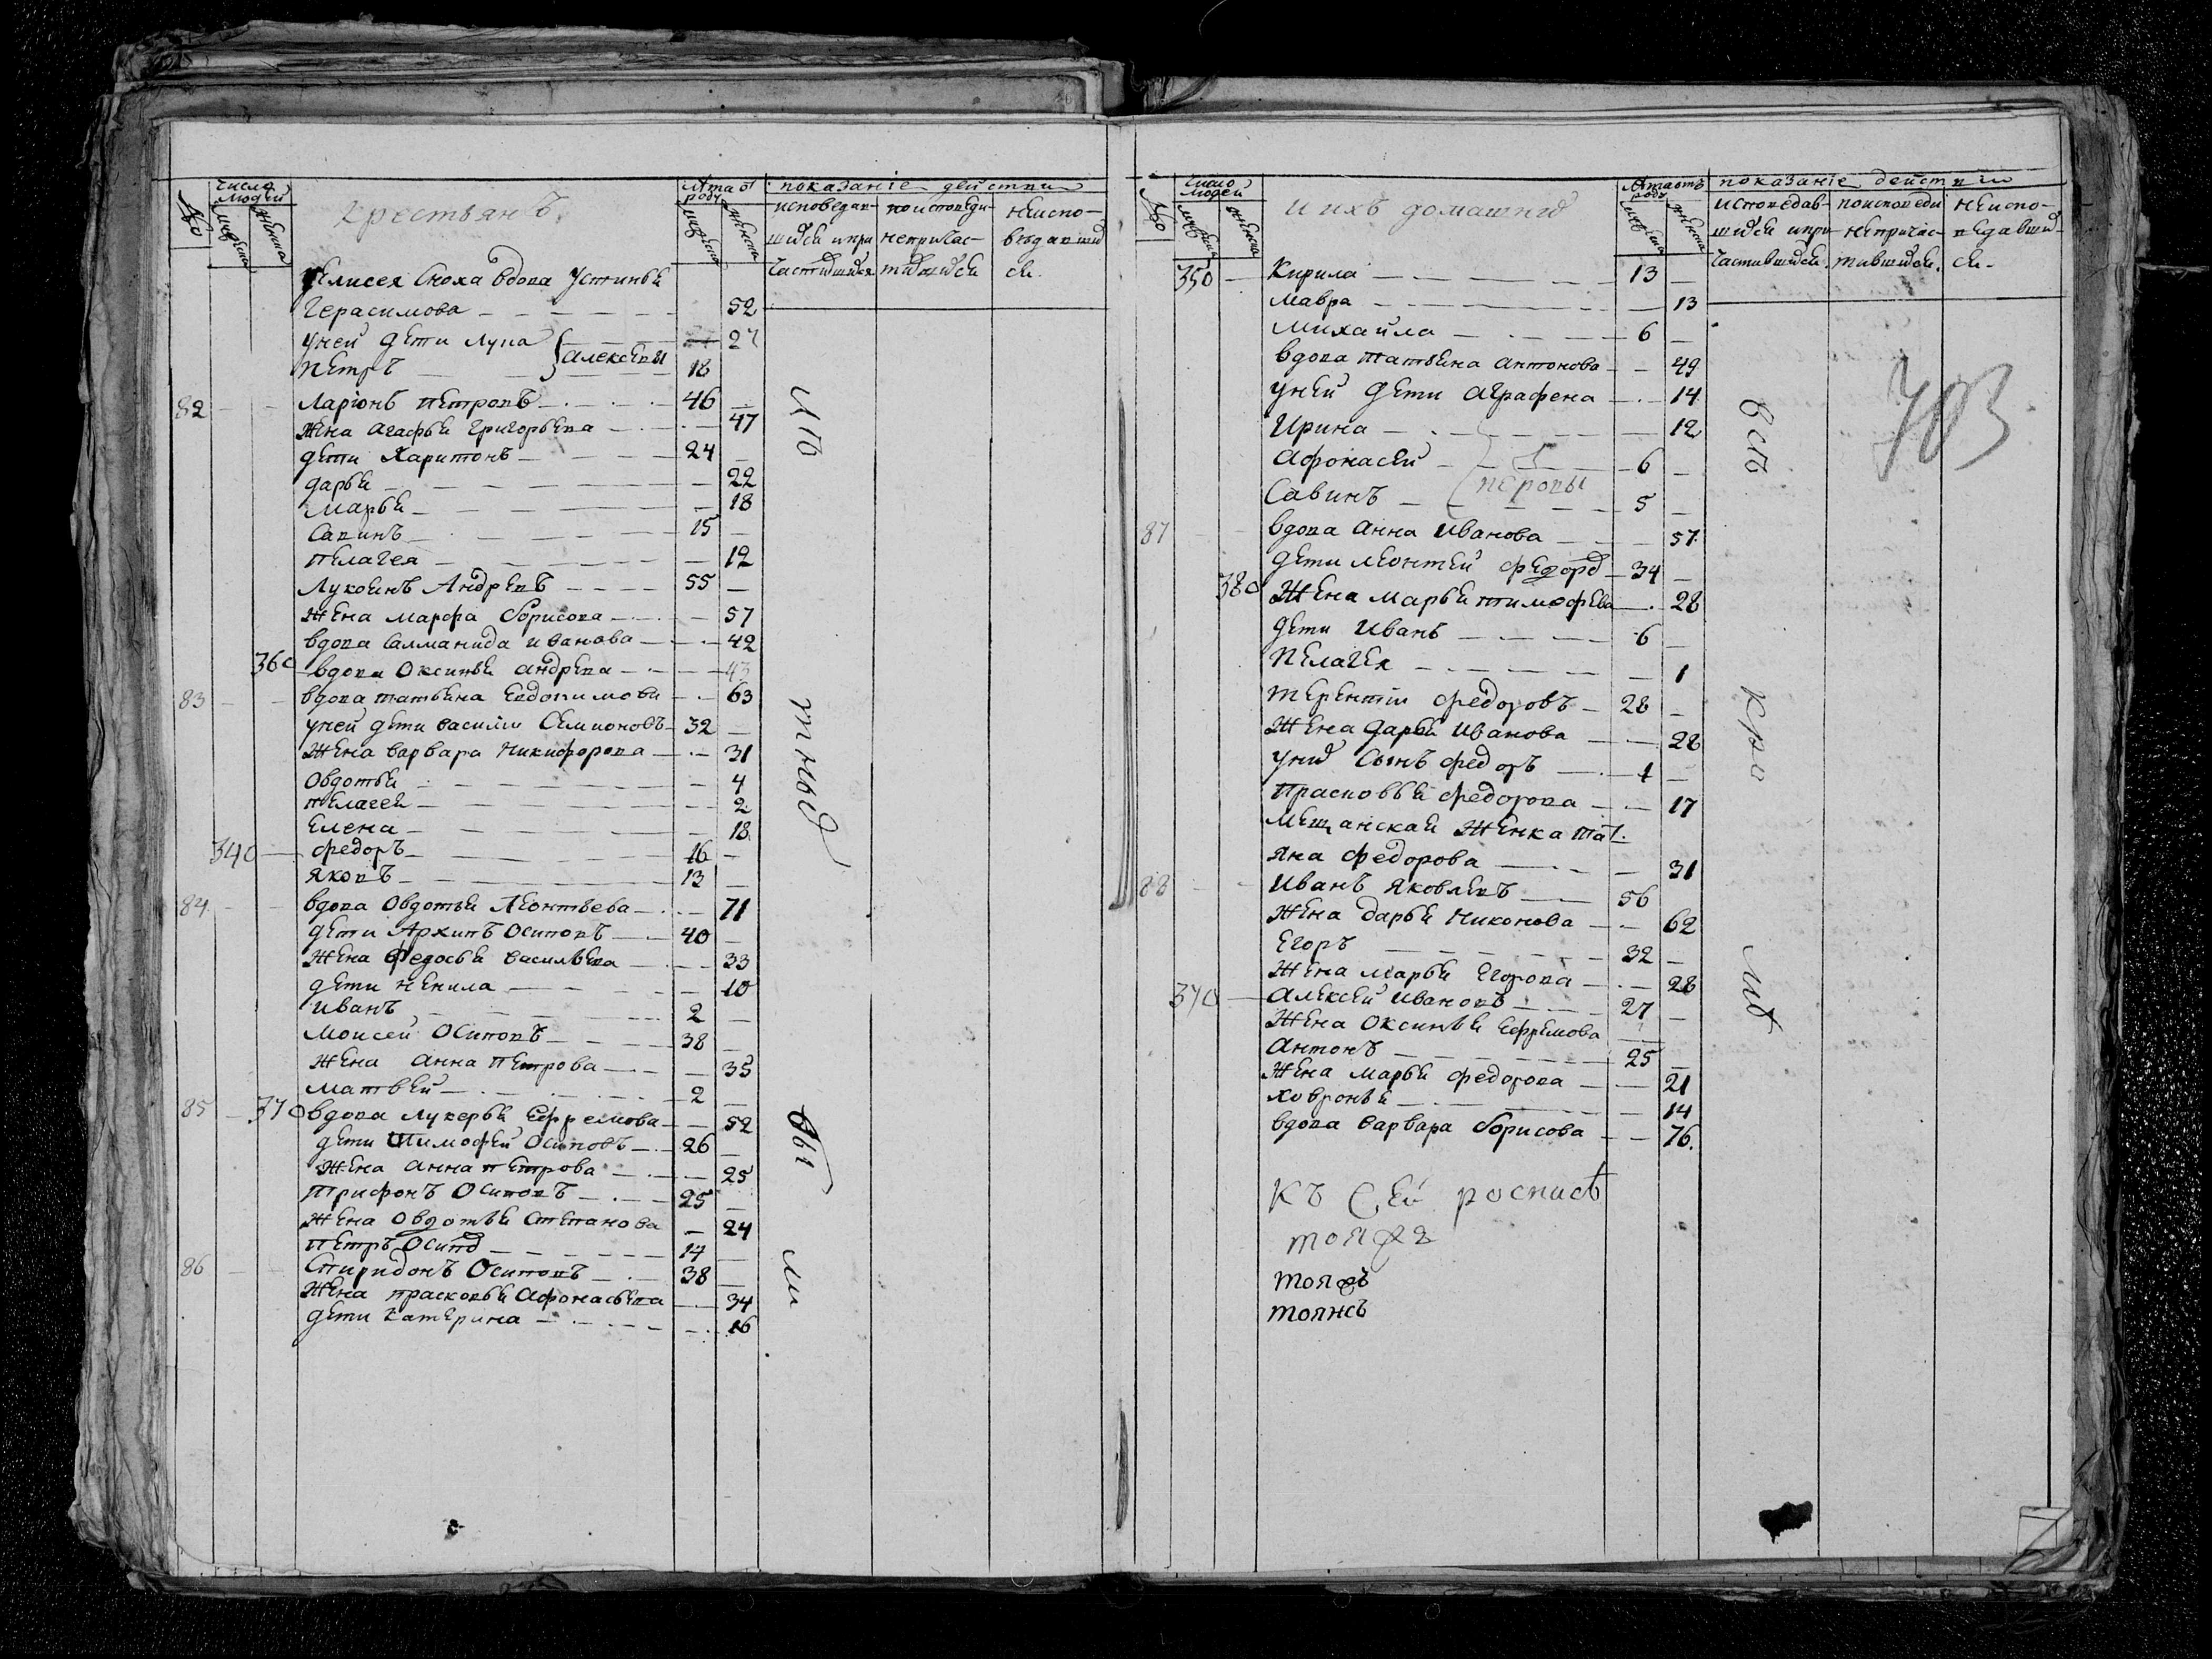 №
число людей
мужска
женска
крестьянъ
лѣта ѿ роду
мужска
женска
показанїе действи
исповедав-
шихся и при
частившихся
по исповеди
непричас-
тившихся
неиспо-
ведавших
ся.
Елисея сноха вдова Устинья
Герасимова 52
у ней дети Лупа 27
Петръ } Алексевы 18
82 Ларїонъ Петровъ 46
жена Агафья Григорьева 47
дети Харитонъ 24
Дарья 22
Марья 18
Савинъ 15
Пелагея 12
Лукоянъ Андревъ 55
жена Марфа Борисова 57
вдова Салманида Иванова 42
360 вдова Оксинья Андрева 43
83 вдова Татьяна Евдокимова 63
у ней дети Василïи Семионовъ 32
жена Варвара Никифорова 31
Овдотья 4
Пелагея 2
Елена 18
340 Федоръ 16
Яковъ 13
84 вдова Овдотья Леонтьева 71
дети Архипъ Осиповъ 40
жена Федосья Васильева 33
дети Ненила 10
Иванъ 2
Моисей Осиповъ 38
жена Анна Петрова 35
Матвей 2
85 370 вдова Лукерья Ефремова 52
дети Тимофей Осиповъ 26
жена Анна Петрова 25
Трифонъ Осиповъ 25
жена Овдотья Степанова 24
Петръ Осипо 14
86 Спиридонъ Осиповъ 38
жена Прасковья Афонасьева 34
дети Катерина 16
и ihъ
тных
бы
ли
№
число людей
мужска
женска
и ихъ домашних
лѣта отъ роду
мужска
женска
показанїе действïи
исповедав-
шихся и при
частившихся.
по исповеди
непричас-
тившихся.
неиспо-
ведавших-
ся.
703
350 Кирила 13
Мавра 13
Михайла 6
вдова Татьяна Антонова 49
у ней дети Аграфена 14
Ирина 12
Афонасей 6
Савинъ 5
87 вдова Анна Иванова 57
дети Леонтей Федоро 34
380 жена Марья Тимофева 28
дети Иванъ 6
Пелагея 1
Терентïи Федоровъ 28
жена Дарья Иванова 28
у них сынъ Федоръ 1
Прасковья Федорова 17
мещанская женка Тат-
яна Федорова 31
88 Иванъ Яковлевъ 56
жена Дарья Никонова 62
Егоръ 32
жена Марья Егорова 28
370 Алексей Ивановъ 27
жена Оксинья Ефремова
Антонъ 25
жена Марья Федорова 21
Ховронья 14
вдова Варвара Борисова 76
всѣ
кро
мѣ
къ сей росписѣ